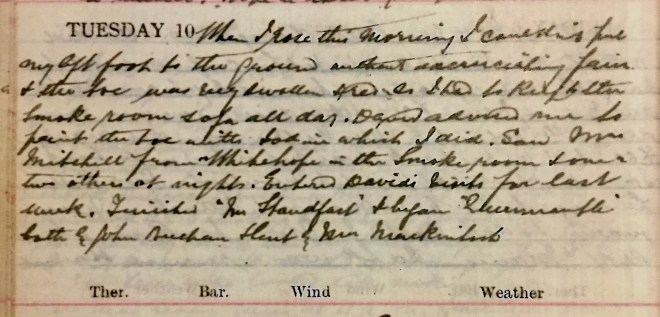 TUESDAY 10 When I rose this morning I couldn't put
my left foot to the ground without excruciating pain
& the toe was very swollen & red. So I had to keep to the
smoke room sofa all day. David advised me to
paint the toe with Iodine which I did. Saw Mr
Mitchell from Whitehope in the smoke room & one or
two others at night. Entered David's visits for last
week. Finished "Mr Standfast" & began "Huntingtower"
both by John Buchan lent by Mrs Mackintosh
Ther. Bar. Wind Weather